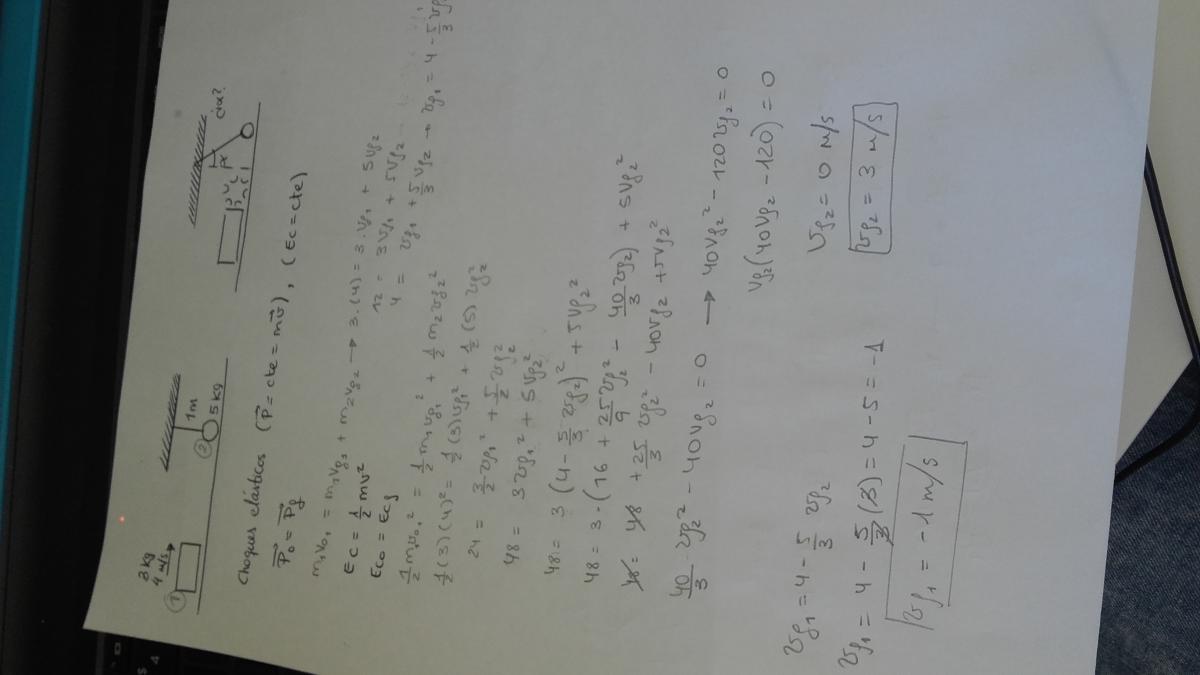 3 kg
4 m/s
①
1m
② 5 kg
α
¿α?
Choques elásticos (P⃗ = cte = mv⃗), (Ec = cte)
P⃗o = P⃗f
m1v01 = m1vf1 + m2vf2 → 3·(4) = 3·vf1 + 5vf2
12 = 3vf1 + 5vf2
4 = vf1 + 5/3 vf2 → vf1 = 4 - 5/3 vf2
Ec = 1/2 mv²
Eco = Ecf
1/2 m1v01² = 1/2 m1vf1² + 1/2 m2vf2²
1/2 (3)(4)² = 1/2 (3)vf1² + 1/2 (5) vf2²
24 = 3/2 vf1² + 5/2 vf2²
48 = 3vf1² + 5vf2²
48 = 3 (4 - 5/3 vf2)² + 5vf2²
48 = 3·(16 + 25/9 vf2² - 40/3 vf2) + 5vf2²
48 = 48 + 25/3 vf2² - 40vf2 + 5vf2²
40/3 vf2² - 40vf2 = 0 → 40vf2² - 120vf2 = 0
vf2(40vf2 - 120) = 0
vf2 = 0 m/s
vf2 = 3 m/s
vf1 = 4 - 5/3 vf2
vf1 = 4 - 5/3 (3) = 4 - 5 = -1
vf1 = -1 m/s